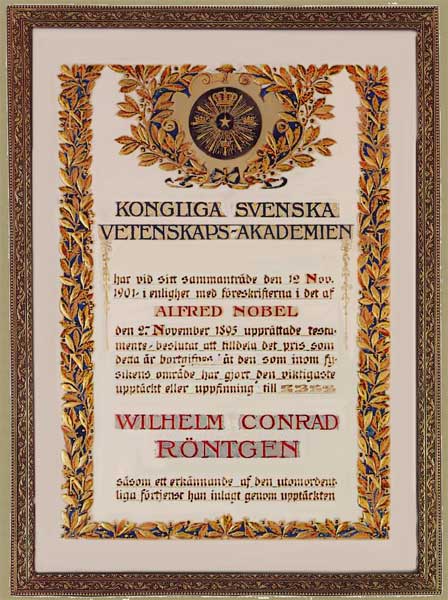 KONGLIGA SVENSKA
VETENSKAPS-AKADEMIEN
har vid sitt sammanträde den 12 Nov.
1901 i enlighet med föreskrifterna i det af
ALFRED NOBEL
den 27 November 1895 upprättade testa-
mente beslutat att tilldela det pris som
detta år bortgifves "åt den som inom fy-
sikens område har gjort den viktigaste
upptäckt eller uppfinning" till
WILHELM CONRAD
RÖNTGEN
såsom ett erkännande af den utomordent-
liga förtjenst han inlagt genom upptäckten